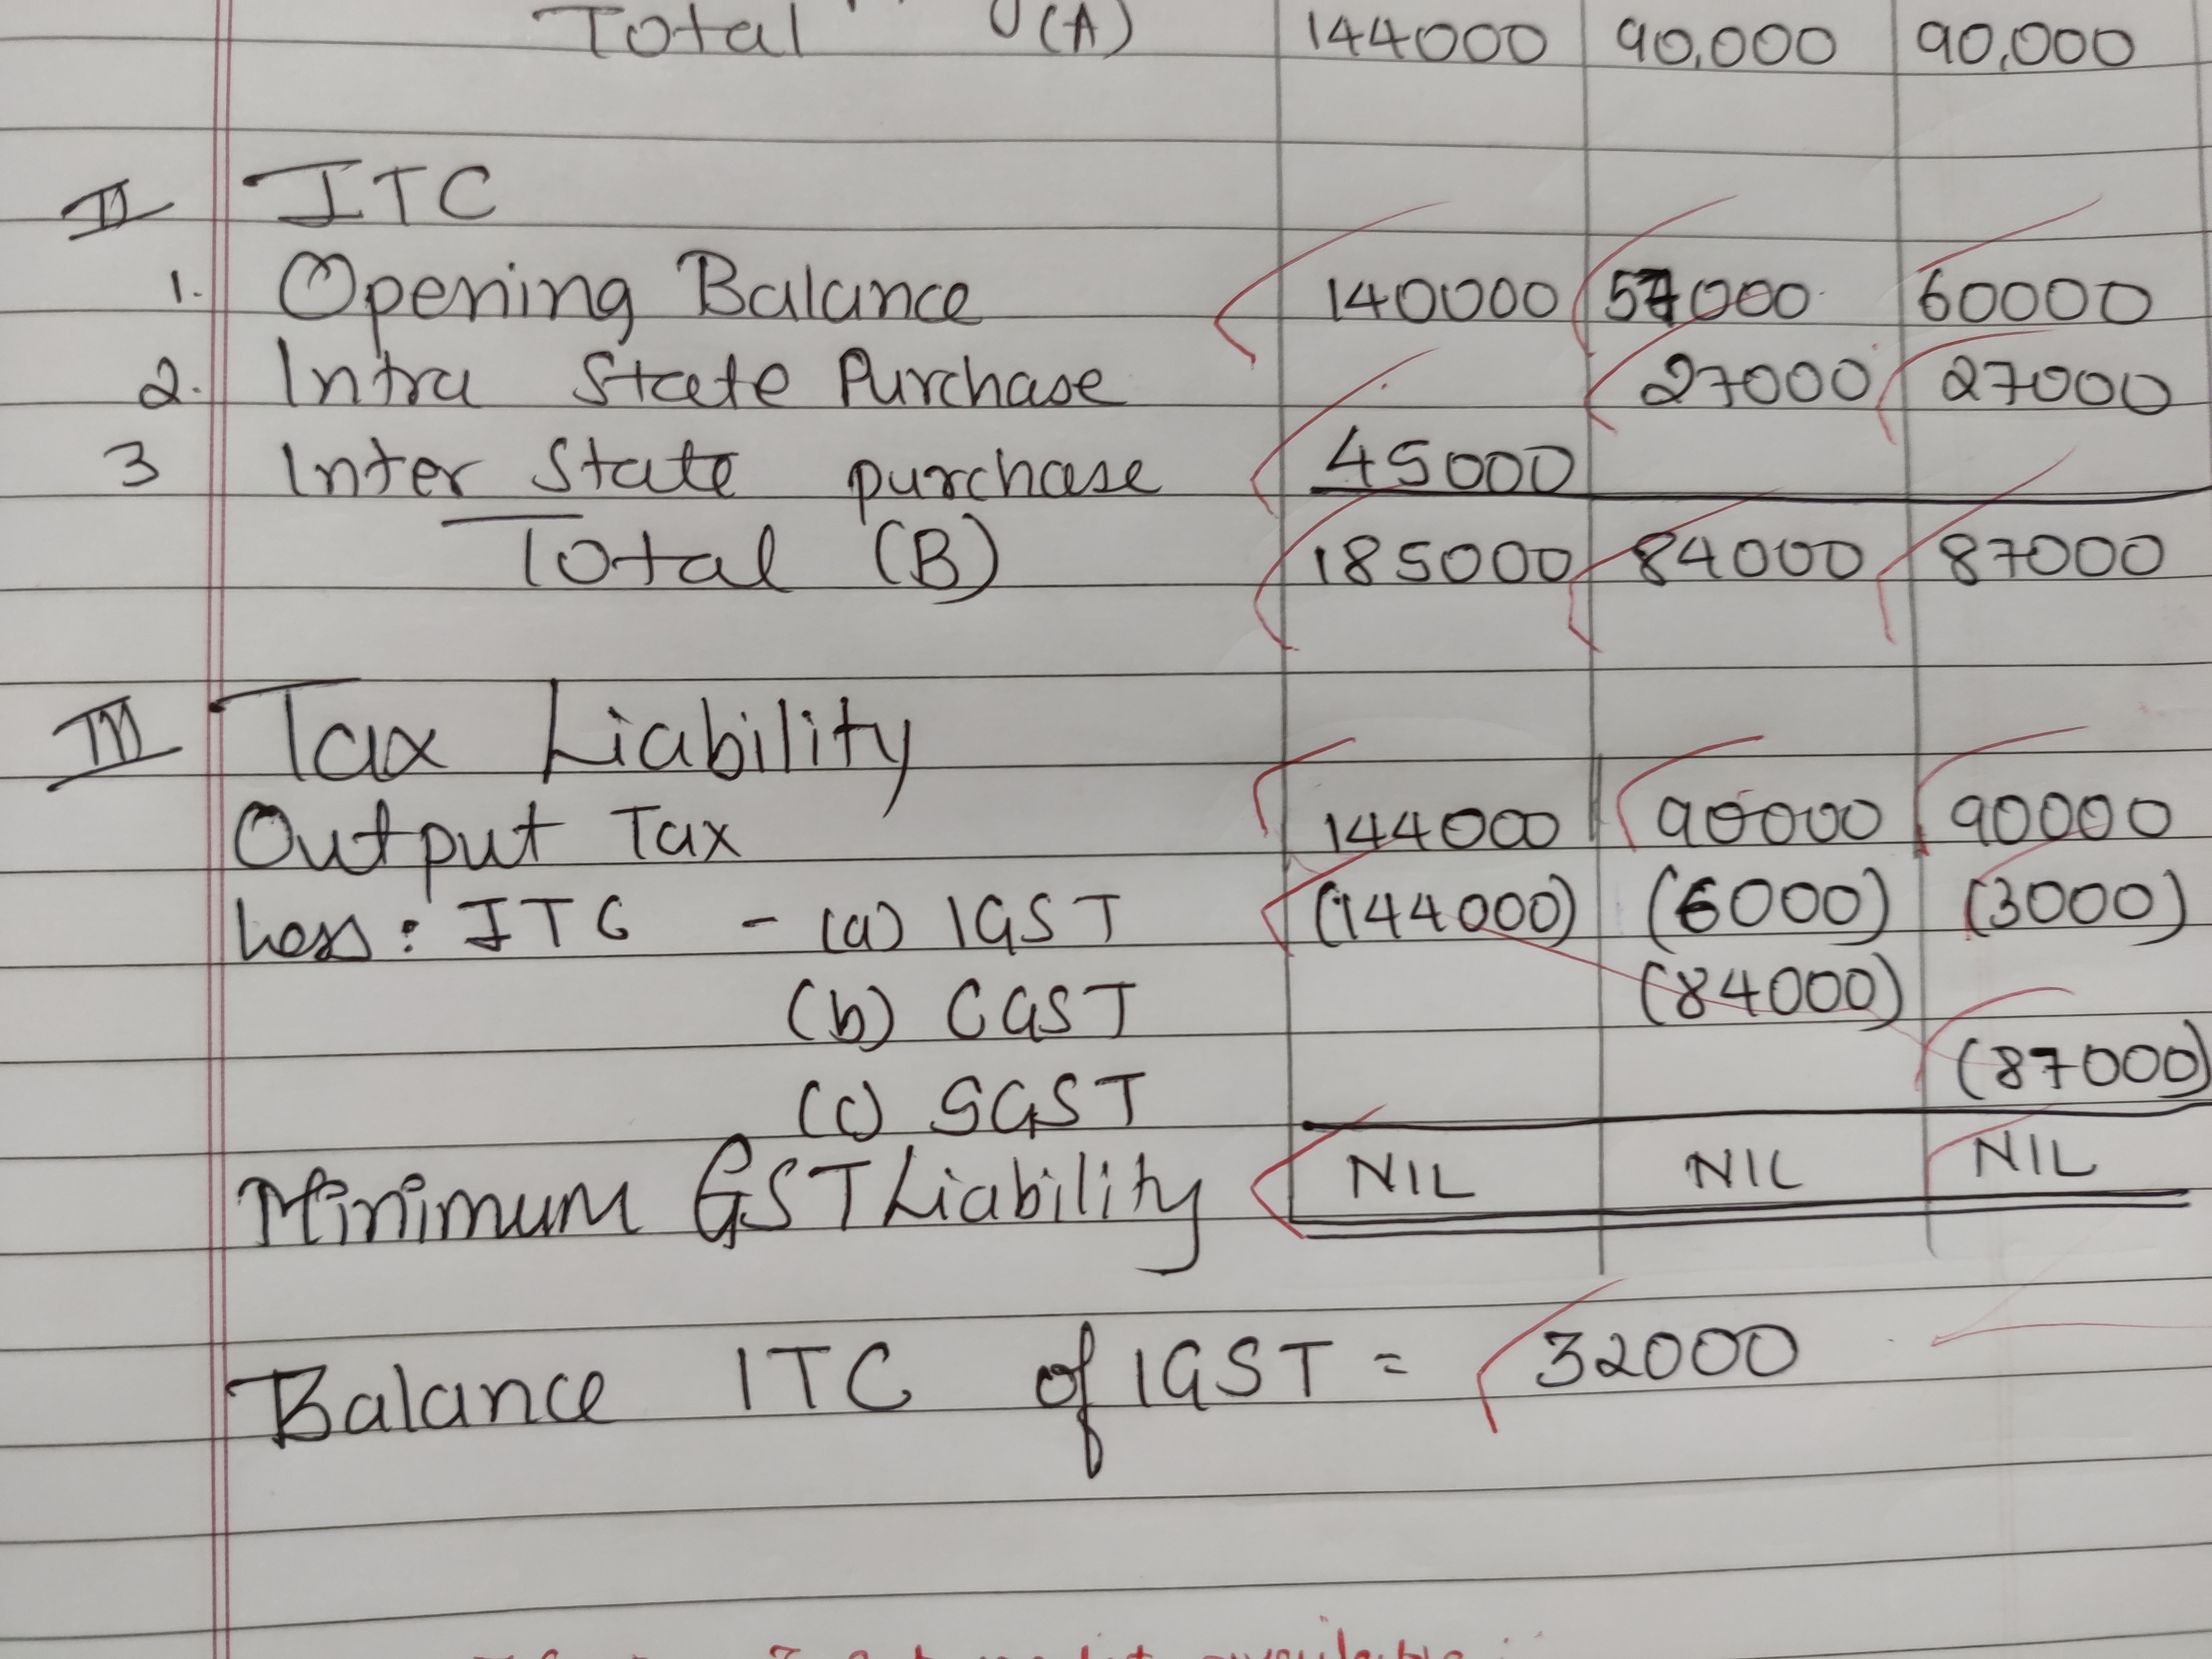 Total (A) 144000 90,000 90,000
II ITC
1. Opening Balance 140000 57000 60000
2. Intra State Purchase 27000 27000
3 Inter State purchase 45000
Total (B) 185000 84000 87000
III Tax Liability
Output Tax 144000 90000 90000
Less: ITC - (a) IGST (144000) (6000) (3000)
(b) CGST (84000)
(c) SGST (87000)
Minimum GST Liability NIL NIL NIL
Balance ITC of IGST = 32000